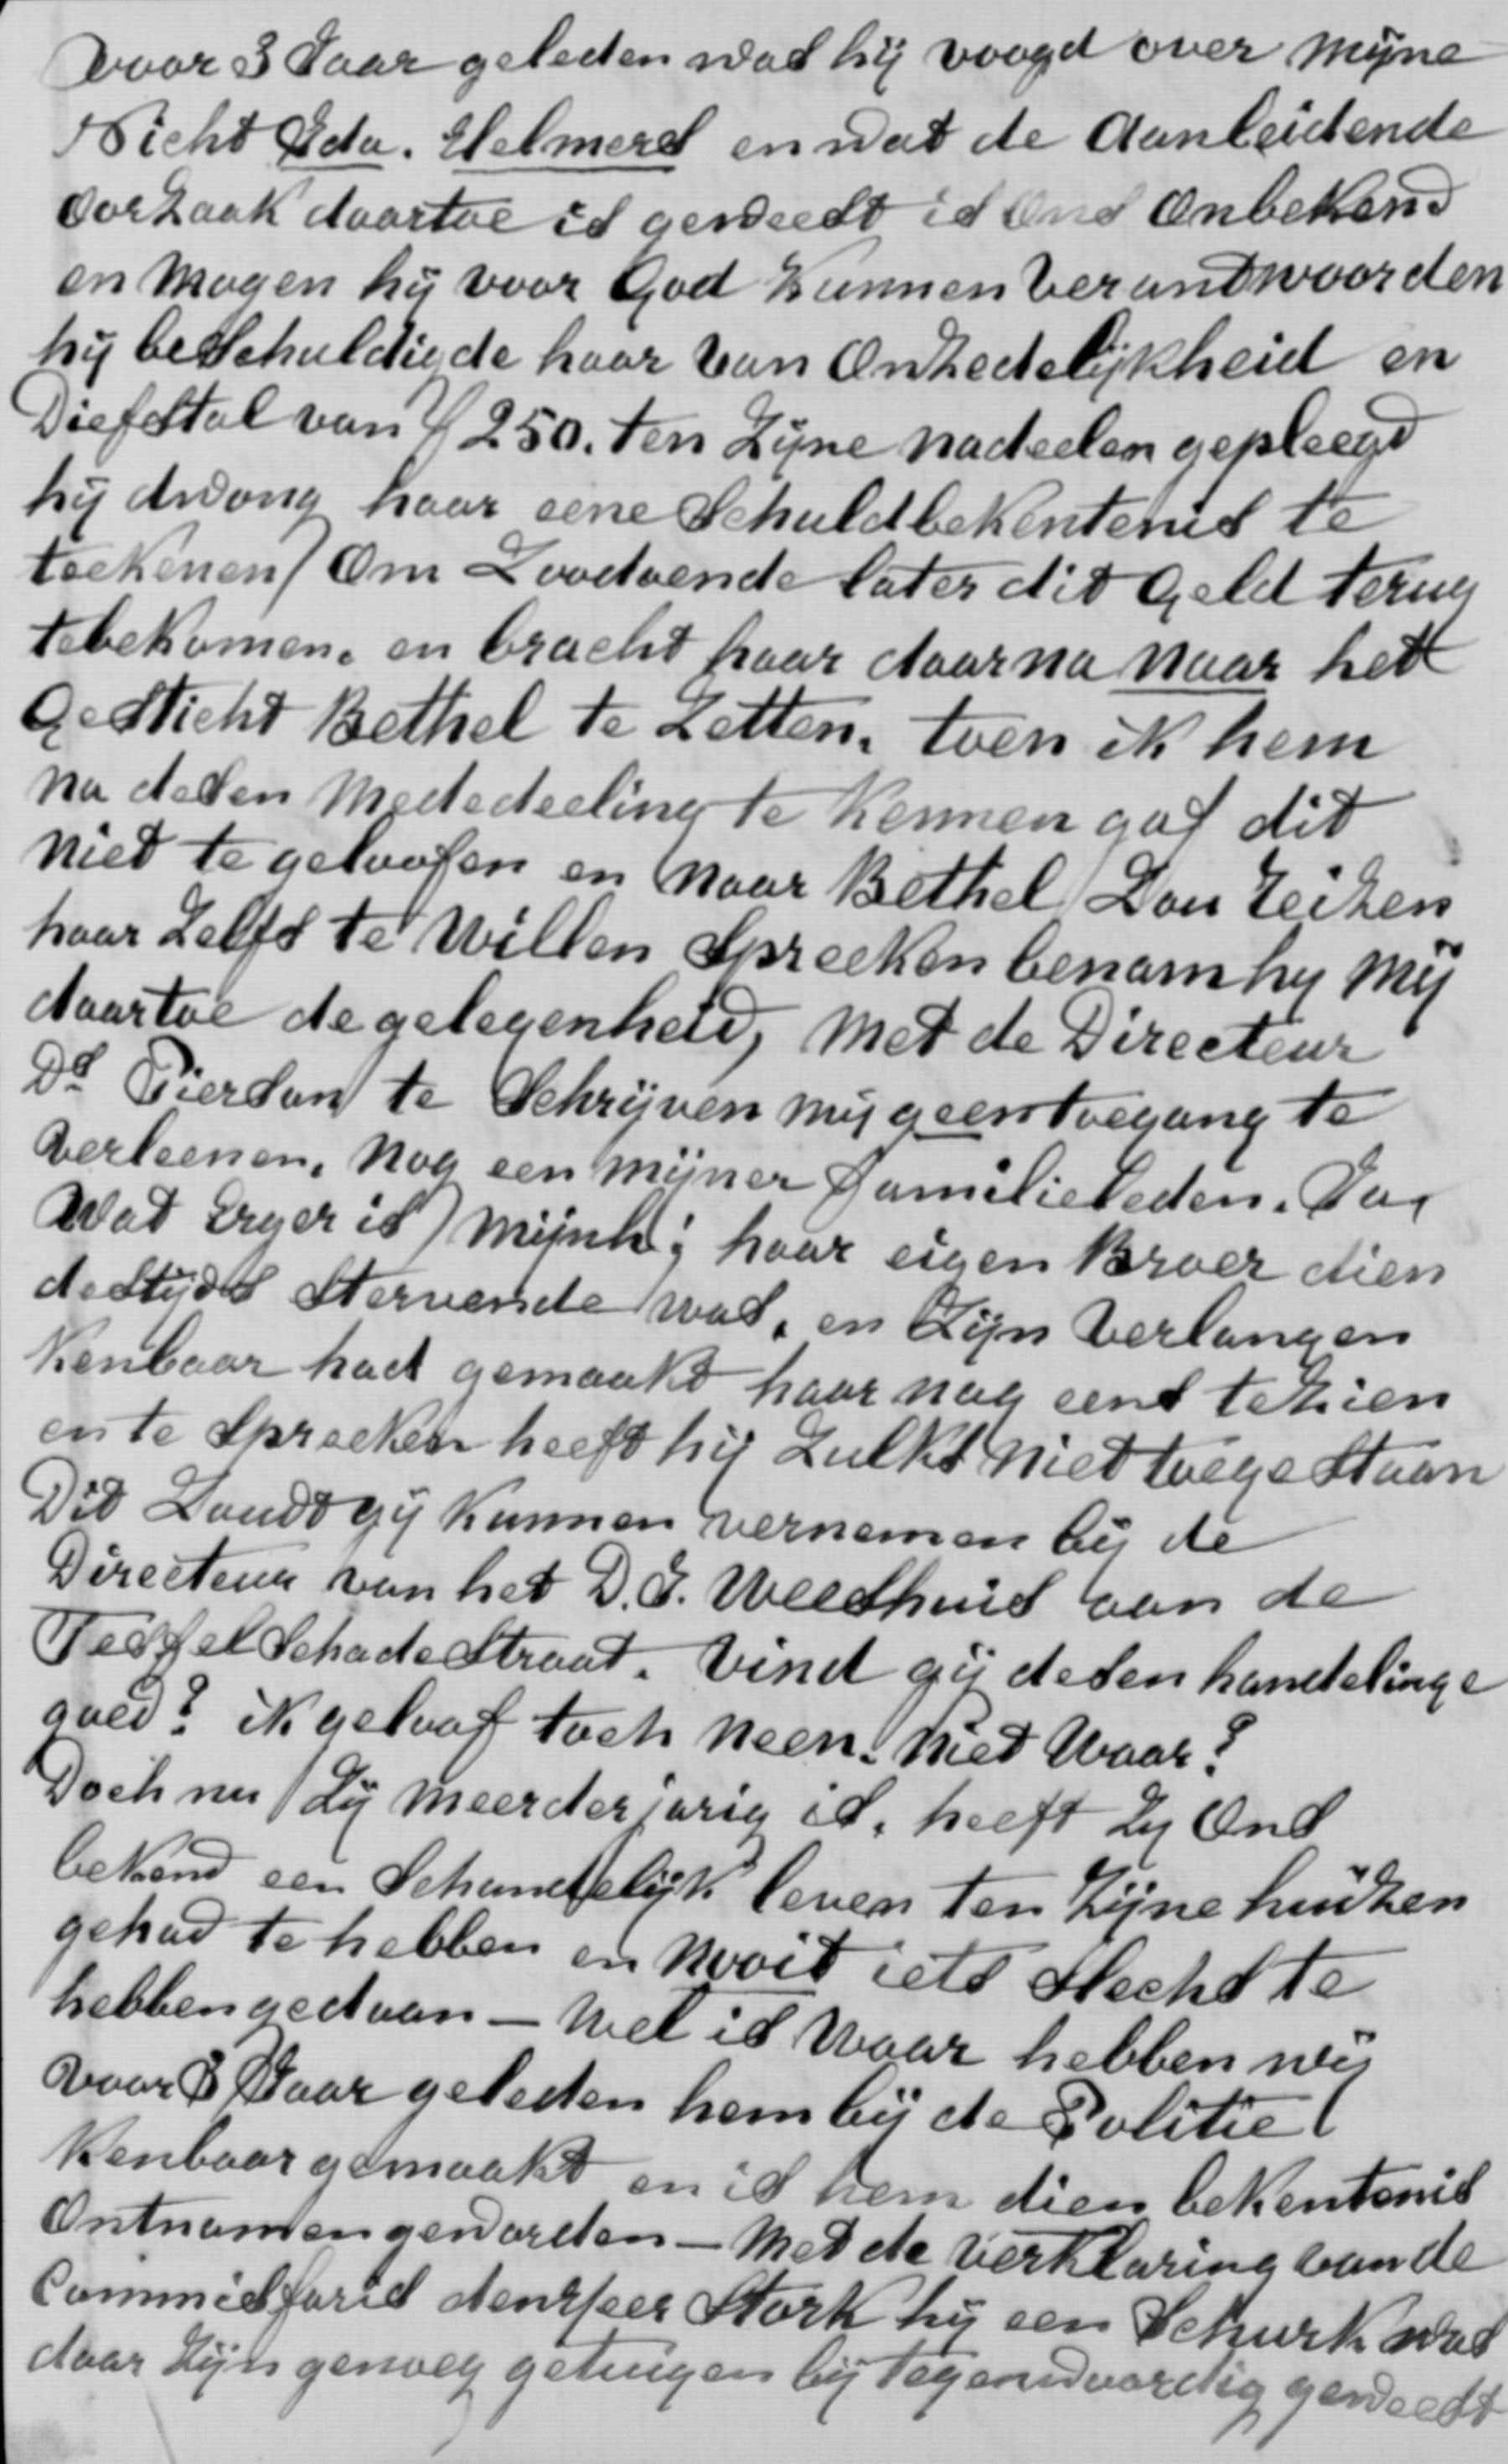 voor 3 Jaar geleden was hij voogd over mijne
Nicht Eda. Helmers en wat de Aanleidende
oorzaak daartoe is geweest is Ons Onbekend
en Mogen hij voor God kunnen verantwoorden
hij beschuldigde haar van Onzedelijkheid en
Diefstal van ƒ 250. ten Zijne nadeelen gepleegd
hij dwong haar eene Schuldbekentenis te
teekenen/ Om Zoodoende later dit Geld terug
tebekomen. en bracht haar daarna naar het
Gesticht Bethel te Zetten. toen ik hem
na desen Mededeeling te kennen gaf dit
niet te geloofen en naar Bethel Zou Reizen
haar Zelfs te Willen Spreeken benam hy Mij
daartoe de gelegenheid, Met de Directeur
Ds Pierson te Schrijven mij geen toegang te
verleenen, Nog een mijner familieleden. Ja,
Wat Erger is) Mijnh; haar eigen Broer dien
destijds stervende was, en Zijn Verlangen
Kenbaar had gemaakt haar nog eens te zien
en te Spreeken heeft hij Zulks Niet toegestaan
Dit Zoudt gij kunnen vernemen bij de
Directeur van het D.E. Weeshuis aan de
Tesselschadestraat. Vind gij desen handelinge
goed? ik geloof toch neen. Niet Waar?
Doch nu Zij Meerderjarig is, heeft Zy Ons
bekend een Schandelijk leven ten Zijne huizen
gehad te hebben en Nooit iets slechts te
hebben gedaan — Wel is Waar hebben wij
voor 3 Jaar geleden hem bij de Politie
Kenbaar gemaakt en is hem dien bekentenis
Ontnomen geworden — Met de verklaring van de
Commissaris den heer Stork hij een Schurk was
daar Zijn genoeg getuigen bij tegenwoordig geweest